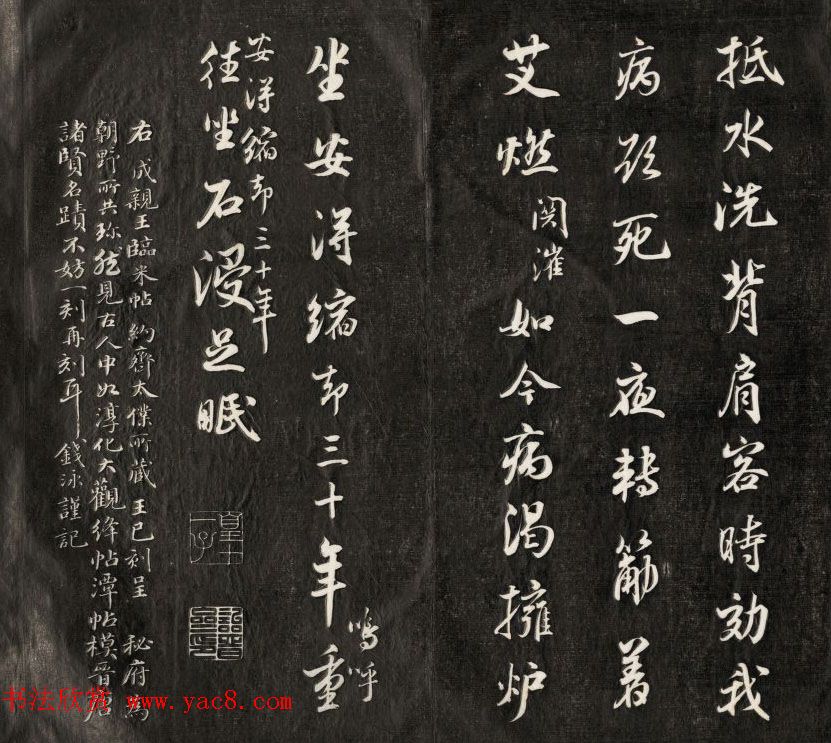 抵水洗背肩客時効我
病欲死一夜轉筋着
艾燃關灌如今病渴擁炉
坐安得縮却三十年重
嗚呼
安得縮却三十年
往坐石浸足眠
右成親王臨米帖約齋太僕所藏王已刻呈秘府為
朝野所共珍然見古人中如淳化大觀絳帖潭帖模晉唐
諸賢名蹟不妨一刻再刻耳錢泳謹記
皇十一子
书法欣赏 www.yac8.com